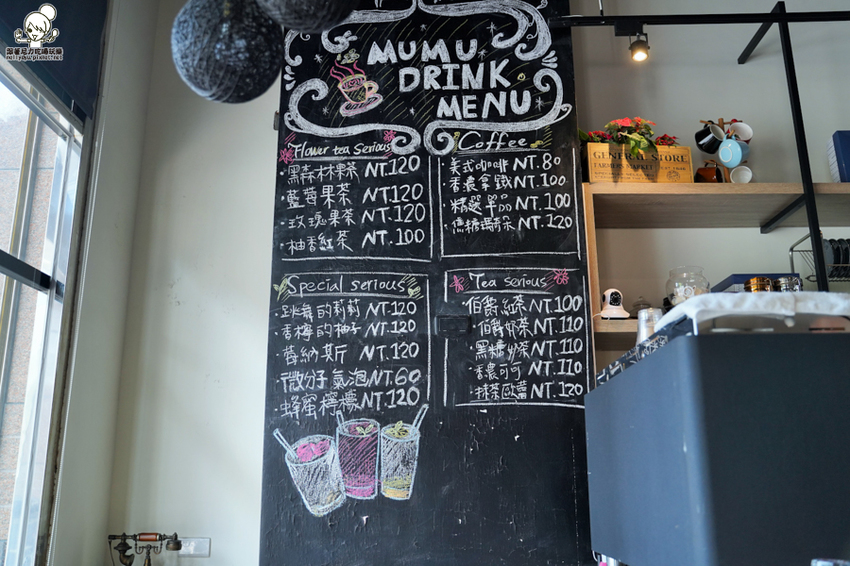 跟著尼力吃喝玩樂
MUMU
DRINK
MENU
Flower tea Serious
·黑森林果茶 NT.120
·藍莓果茶 NT.120
·玫瑰果茶 NT.120
·柚香紅茶 NT.100
Coffee
·美式咖啡 NT.80
·香濃拿鐵 NT.100
·精選單品 NT.100
·焦糖瑪奇朵 NT.120
Special serious
·跳舞的莉莉 NT.120
·香檸的柚子 NT.120
NT.120
·微分子氣泡 NT.60
·蜂蜜檸檬 NT.120
Tea serious
·伯爵紅茶 NT.100
·伯爵奶茶 NT.110
·黑糖奶茶 NT.110
·香濃可可 NT.110
·抹茶歐蕾 NT.120
GENERAL STORE
FARMERS MARKET